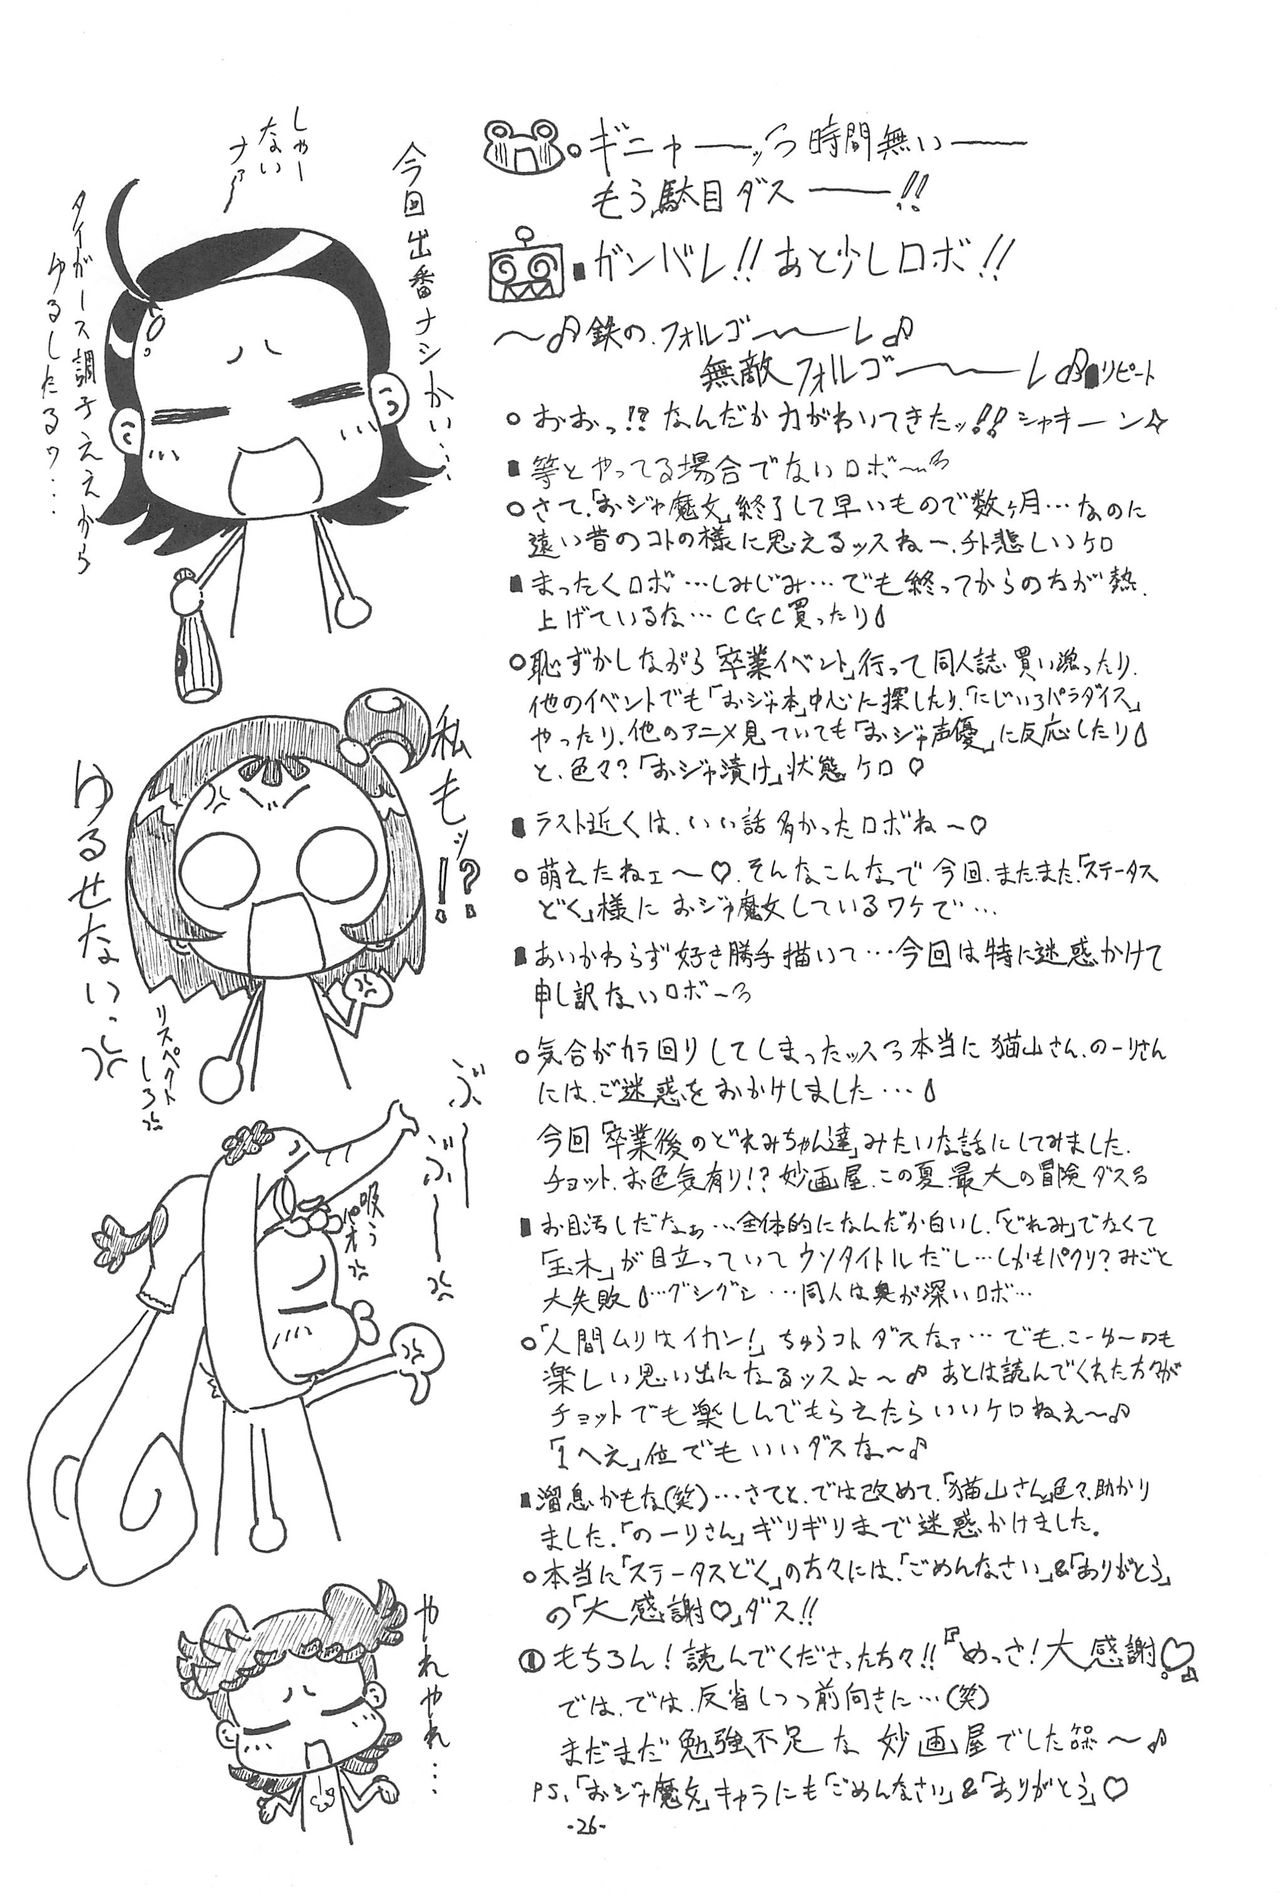 ギニャーーッ 時間無いーー
もう駄目ダスーー!!
ガンバレ!! あと少しロボ!!
〜♪鉄のフォルゴーーレ♪
無敵フォルゴーーレ♪ リピート
○おおっ!? なんだか力がわいてきたッ!! シャキーン☆
■等とやってる場合でないロボ〜
○さて、「おジャ魔女」終了して早いもので数ヶ月…なのに
遠い昔のコトの様に思えるッスねー、チト悲しいケロ
■まったくロボ…しみじみ…でも終ってからの方が熱
上げているな…CGC買ったり
○恥ずかしながら「卒業イベント」行って同人誌買い漁ったり、
他のイベントでも「おジャ本」中心に探したり、「にじいろパラダイス」
やったり、他のアニメ見ていても「おジャ声優」に反応したり
と、色々?「おジャ漬け」状態ケロ♡
■ラスト近くは、いい話多かったロボね〜♡
○萌えたねェ〜♡、そんなこんなで今回、またまた「ステータス
どく」様におジャ魔女しているワケで…
■あいかわらず好き勝手描いて…今回は特に迷惑かけて
申し訳ないロボ〜
○気合がカラ回りしてしまったッス 本当に猫山さん、のーりさん
には、ご迷惑をおかけしました…
今回「卒業後のどれみちゃん達」みたいな話にしてみました、
チョット、お色気有り!? 妙画屋、この夏、最大の冒険ダス
■お目汚しだなぁ…全体的になんだか白いし、「どれみ」でなくて
「玉木」が目立っていてウソタイトルだし…しかもパクリ? みごと
大失敗…グシグシ…同人は奥が深いロボ…
○「人間ムリはイカン!」ちゅうコトダスなァ…でも、こーゆーのも
楽しい思い出になるッスよ〜♪ あとは読んでくれた方々が
チョットでも楽しんでもらえたらいいケロねぇ〜♪
「1へえ」位でもいいダスな〜♪
■溜息かもな(笑)…さてと、では改めて、「猫山さん」色々、助かり
ました、「のーりさん」ギリギリまで迷惑かけました。
○本当に「ステータスどく」の方々には、「ごめんなさい」&「ありがとう」
の「大感謝♡」ダス!!
①もちろん! 読んでくださった方々!!『めっさ! 大感謝♡』
では、では、反省しつつ前向きに…(笑)
まだまだ勉強不足な 妙画屋でした ケロボ〜♪
PS、「おジャ魔女」キャラにも「ごめんなさい」&「ありがとう」♡
-26-
今回出番ナシかい…
しゃー
ない
ナァ〜
タイガース調子ええから
ゆるしたるワ…
私もッ!?
ゆるせないっ
リスペクト
しろ
ぶーー
ぶーー
吸う
パオ
やれやれ…